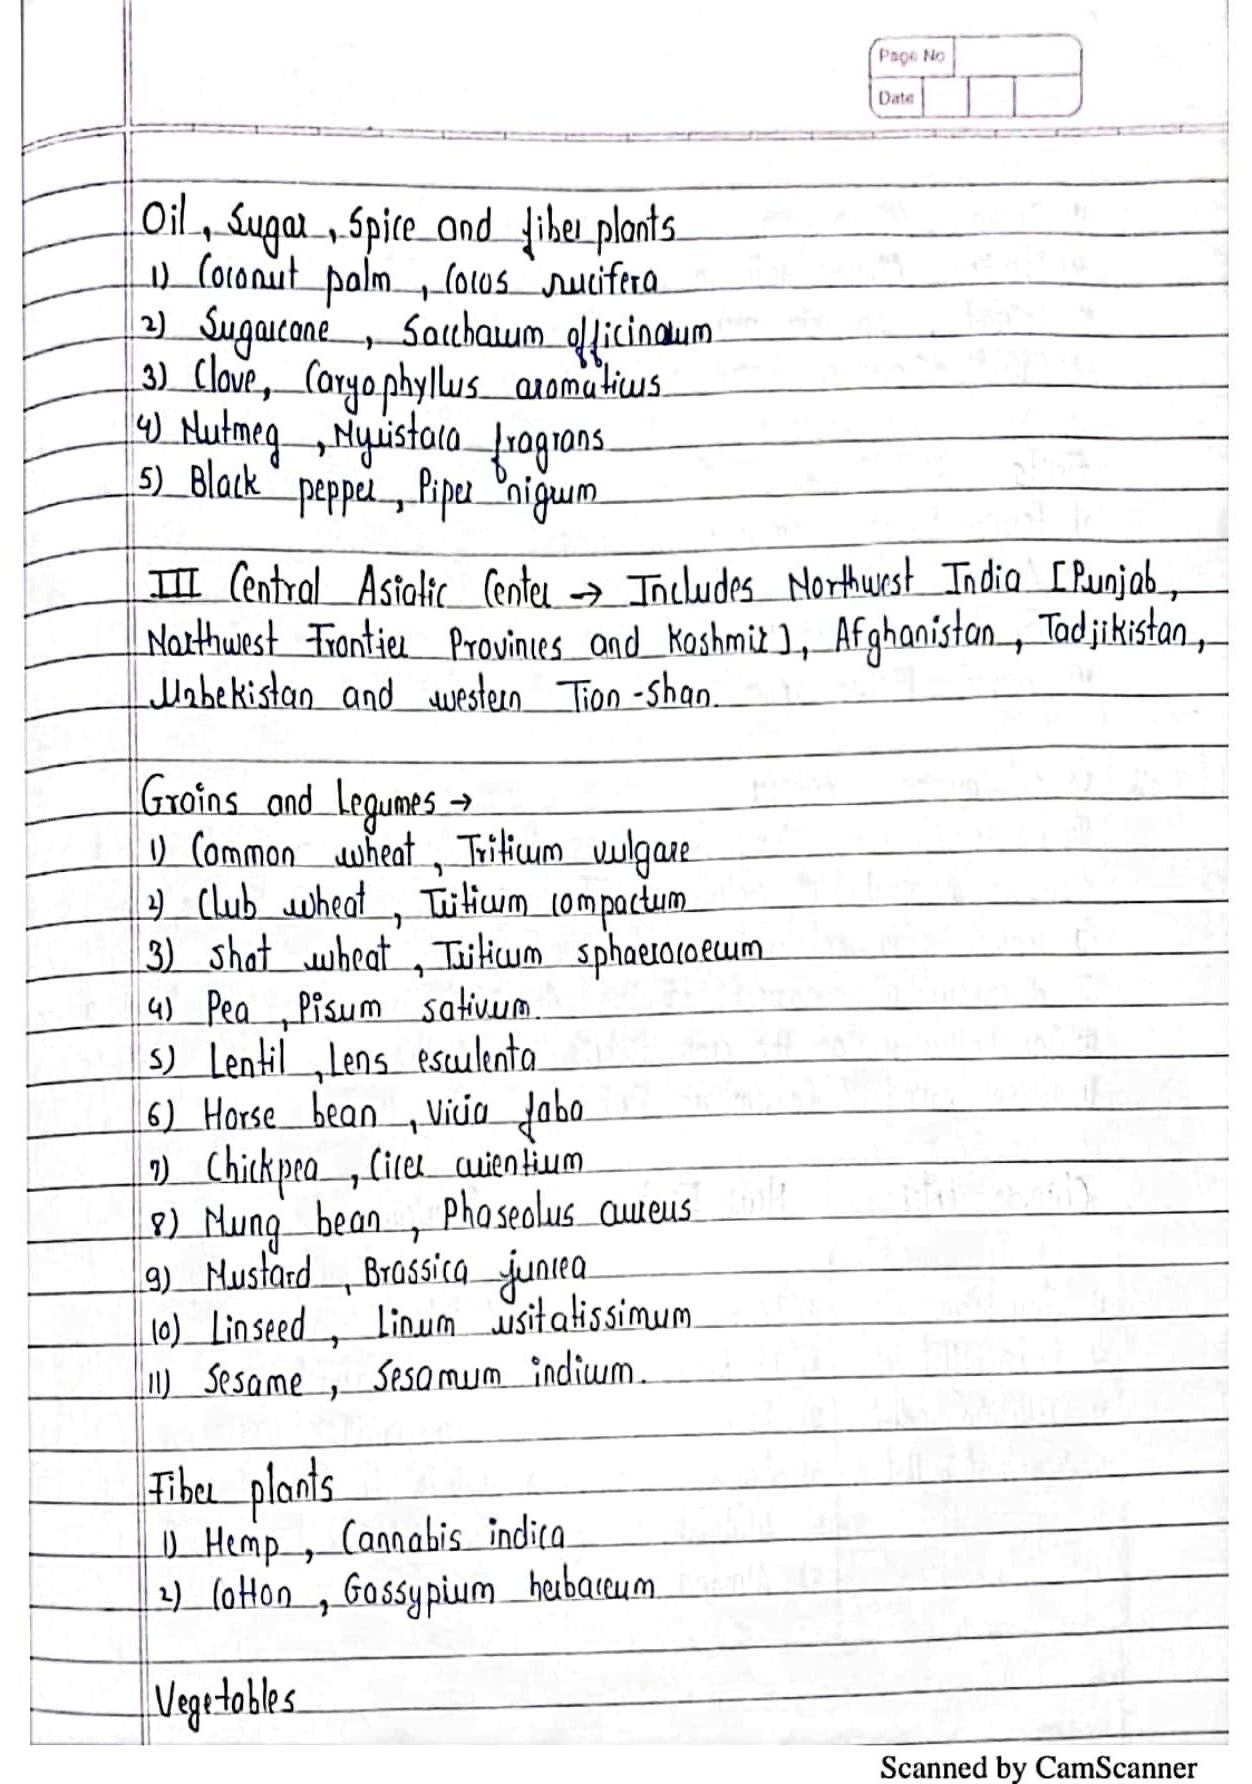 Page No
Date
Oil, Sugar, Spice and fiber plants
1) Coconut palm, Cocos nucifera
2) Sugarcane, Saccharum officinarum
3) Clove, Caryophyllus aromaticus
4) Nutmeg, Myristaca fragrans
5) Black pepper, Piper nigrum
III Central Asiatic Center → Includes Northwest India [Punjab,
Northwest Frontier Provinces and Kashmir], Afghanistan, Tadjikistan,
Uzbekistan and western Tian-Shan.
Grains and Legumes →
1) Common wheat, Triticum vulgare
2) Club wheat, Triticum compactum
3) Shot wheat, Triticum sphaerocoecum
4) Pea, Pisum sativum.
5) Lentil, Lens esculenta
6) Horse bean, Vicia faba
7) Chickpea, Cicer arientium
8) Mung bean, Phaseolus aureus
9) Mustard, Brassica juncea
10) Linseed, Linum usitatissimum
11) Sesame, Sesamum indicum.
Fiber plants
1) Hemp, Cannabis indica
2) Cotton, Gossypium herbaceum
Vegetables
Scanned by CamScanner